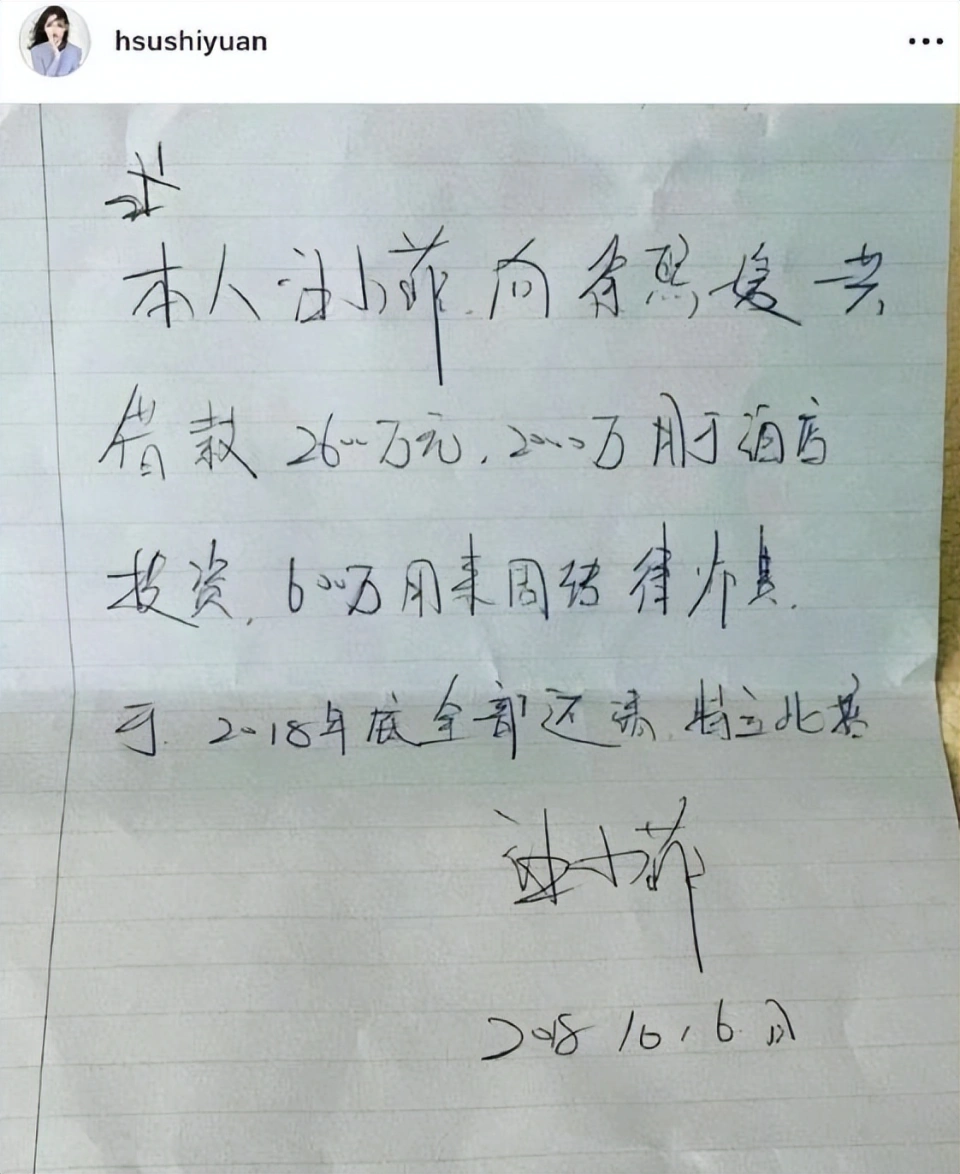 hsushiyuan
本人汪小菲.向徐熙媛共
借款2600万元.2000万用于酒店
投资.600万用来周转律师费.
于.2018年底全部还清.特立此据
汪小菲
2018 10.6日